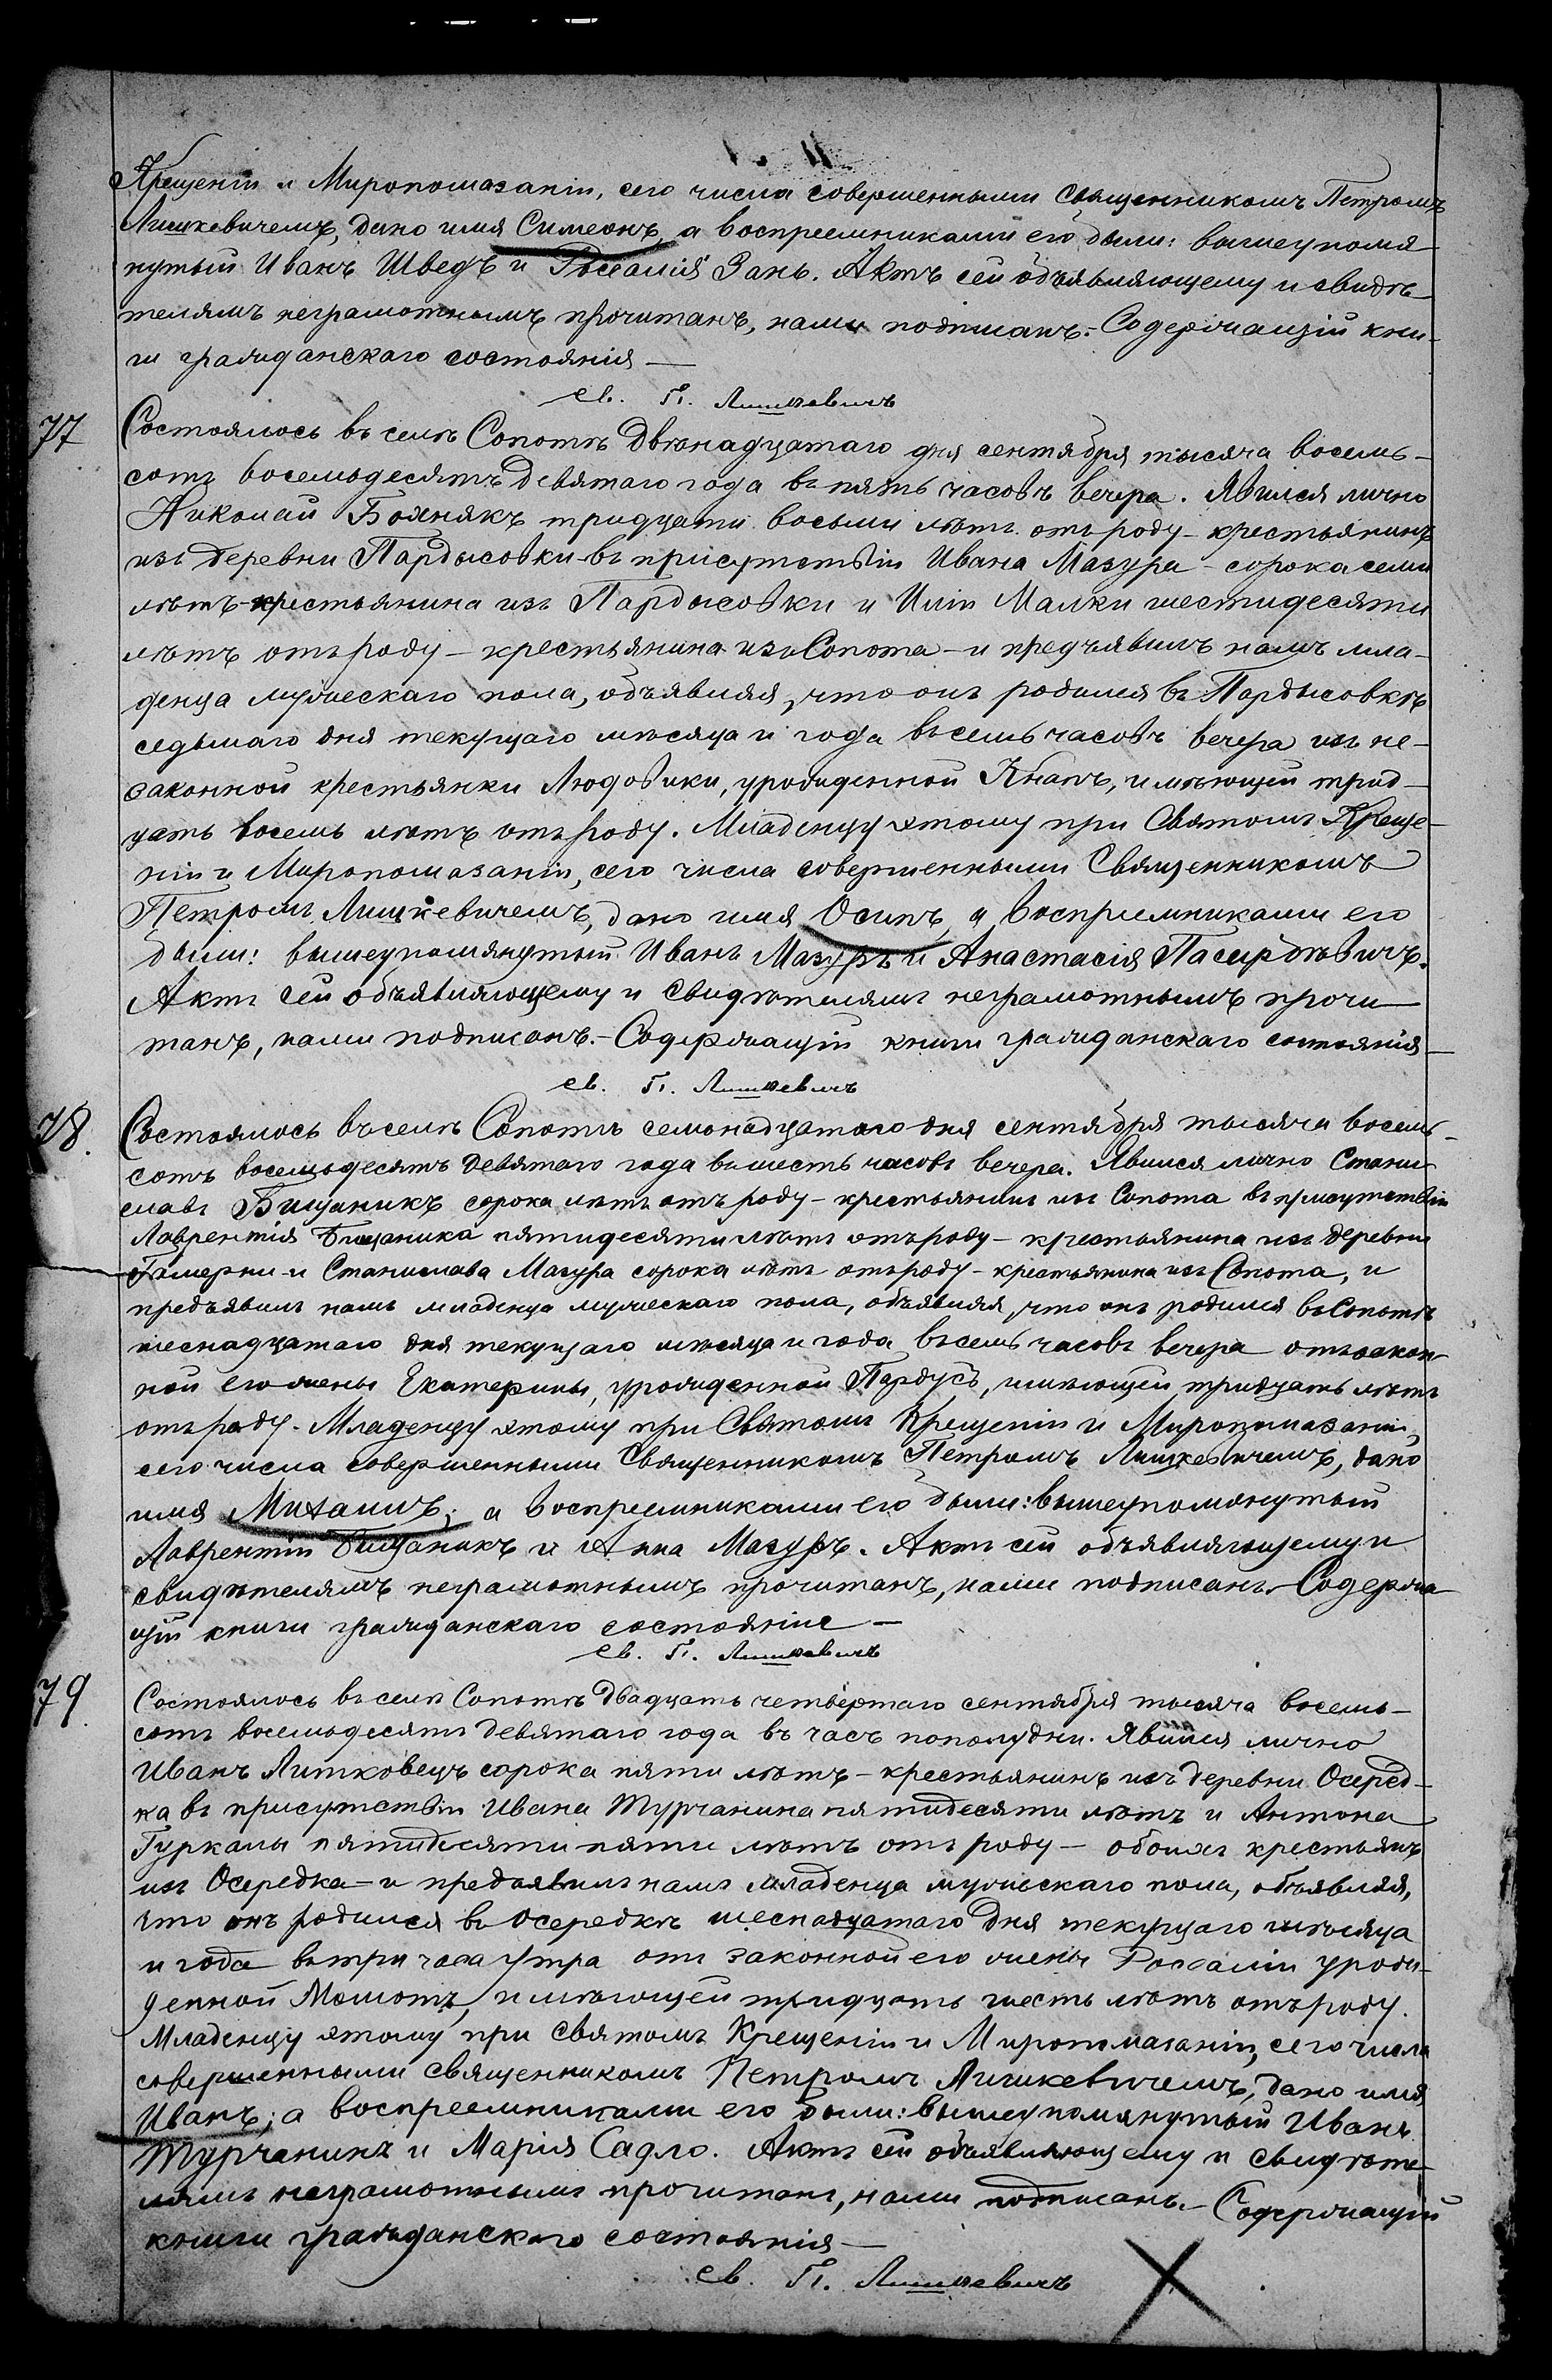 Крещеніи и Миропомазаніи, сего числа совершенными Священникомъ Петромъ
Лишкевичемъ, дано имя Симеонъ, а воспреемниками его были: вышеупомя-
нутый Иванъ Шведъ и Розалія Зань. Актъ сей объявляющему и свидѣ-
телямъ неграмотнымъ прочитанъ, нами подписанъ.- Содержащій кни-
ги гражданскаго состоянія —
Св. П. Лишкевичъ
77 Состоялось въ селѣ Сопотѣ двѣнадцатаго дня сентября тысяча восемь-
сотъ восемьдесятъ девятаго года въ пять часовъ вечера. Явился лично
Николай Бохнякъ тридцати восьми лѣтъ отъ роду - крестьянинъ
изъ деревни Пардысовки - въ присутствіи Ивана Мазура - сорока семи
лѣтъ - крестьянина изъ Пардысовки и Иліи Малки шестидесяти
лѣтъ отъ роду - крестьянина изъ Сопота - и предъявилъ намъ мла-
денца мужескаго пола, объявляя, что онъ родился въ Пардысовкѣ
седьмаго дня текущаго мѣсяца и года въ семь часовъ вечера изъ не-
законной крестьянки Людовики, урожденной Кнапъ, имѣющей трид-
цать восемь лѣтъ отъ роду. Младенцу этому при Святомъ Креще-
ніи и Миропомазаніи, сего числа совершенными Священникомъ
Петромъ Лишкевичемъ, дано имя Осипъ, а воспріемниками его
были: вышеупомянутый Иванъ Мазуръ и Анастасія
Актъ сей объявляющему и свидѣтелямъ неграмотнымъ прочи-
танъ, нами подписанъ.- Содержащій книги гражданскаго состоянія —
Св. П. Лишкевичъ
78. Состоялось въ селѣ Сопотѣ семнадцатаго дня сентября тысяча восемь-
сотъ восемьдесятъ девятаго года въ шесть часовъ вечера. Явился лично Стани-
славъ Бищаникъ сорока лѣтъ отъ роду - крестьянинъ изъ Сопота въ присутствіи
Лаврентія Бищаника пятидесяти лѣтъ отъ роду - крестьянина изъ деревни
Гамерни и Станислава Мазура сорока лѣтъ отъ роду - крестьянина изъ Сопота, и
предъявилъ намъ младенца мужескаго пола, объявляя, что онъ родился въ Сопотѣ
шеснадцатаго дня текущаго мѣсяца и года въ семь часовъ вечера отъ закон-
ной его жены Екатерины, урожденной Пардусъ, имѣющей тридцать лѣтъ
отъ роду. Младенцу этому при Святомъ Крещеніи и Миропомазаніи,
сего числа совершенными Священникомъ Петромъ Лишкевичемъ, дано
имя Михаилъ; а воспреемниками его были: вышеупомянутый
Лаврентій Бищаникъ и Анна Мазуръ. Актъ сей объявляющему и
свидѣтелямъ неграмотнымъ прочитанъ, нами подписанъ. - Содержа-
щій книги гражданскаго состояніе —
Св. П. Лишкевичъ
79. Состоялось въ селѣ Сопотѣ двадцать четвертаго сентября тысяча восемь-
сотъ восемьдесятъ девятаго года въ часъ пополудни. Явился лично
Иванъ Литковецъ сорока пяти лѣтъ - крестьянинъ изъ деревни Осеред-
ка въ присутствіи Ивана Турчанина пятидесяти лѣтъ и Антона
Гуркалы пятидесяти пяти лѣтъ отъ роду - обоихъ крестьянъ
изъ Осередка - и предъявилъ намъ младенца мужескаго пола, объявляя,
что онъ родился въ Осередкѣ шеснадцатаго дня текущаго мѣсяца
и года въ три часа утра отъ законной его жены Розаліи урож-
денной Момотъ, имѣющей тридцать шесть лѣтъ отъ роду.
Младенцу этому при Святомъ Крещеніи и Миропомазаніи, сего числа
совершенными священникомъ Петромъ Лишкевичемъ, дано имя
Иванъ; а воспреемниками его были: вышеупомянутый Иванъ
Турчанинъ и Марія Садло. Актъ сей объявляющему и свидѣте-
лямъ неграмотнымъ прочитанъ, нами подписанъ. - Содержащій
книги гражданскаго состоянія —
Св. П. Лишкевичъ